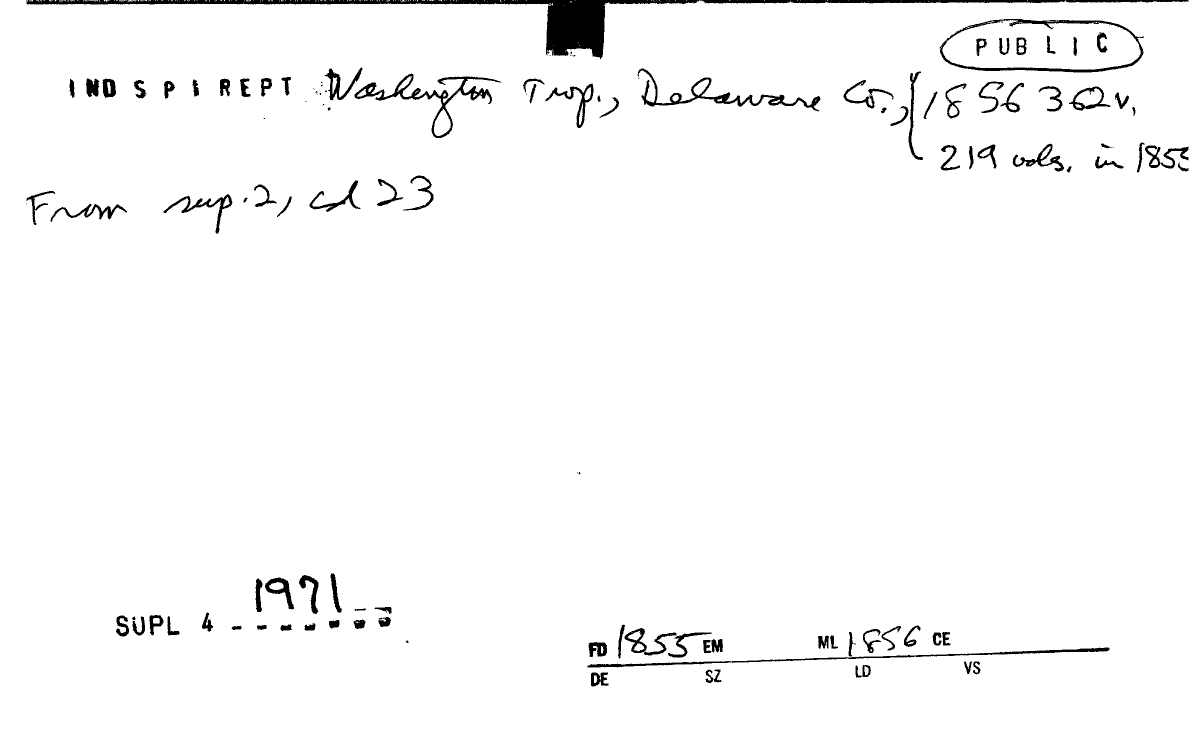 PUBLIC
INDSPIREPT Washington Twp., Delaware Co., 1856 362v.
219 vols. in 1855
From sup.2, cd 23
1971
SUPL 4 - - - - - - -
FD 1855 EM ML 1856 CE
DE SZ LD VS